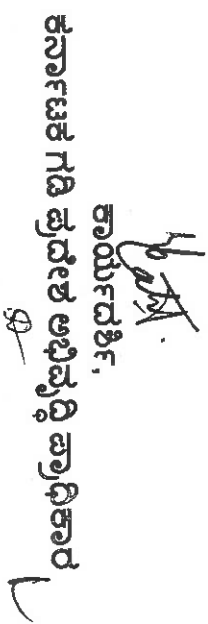 ಕಾರ್ಯದರ್ಶಿ,
ಕರ್ನಾಟಕ ಗಡಿ ಪ್ರದೇಶ ಅಭಿವೃದ್ಧಿ ಪ್ರಾಧಿಕಾರ